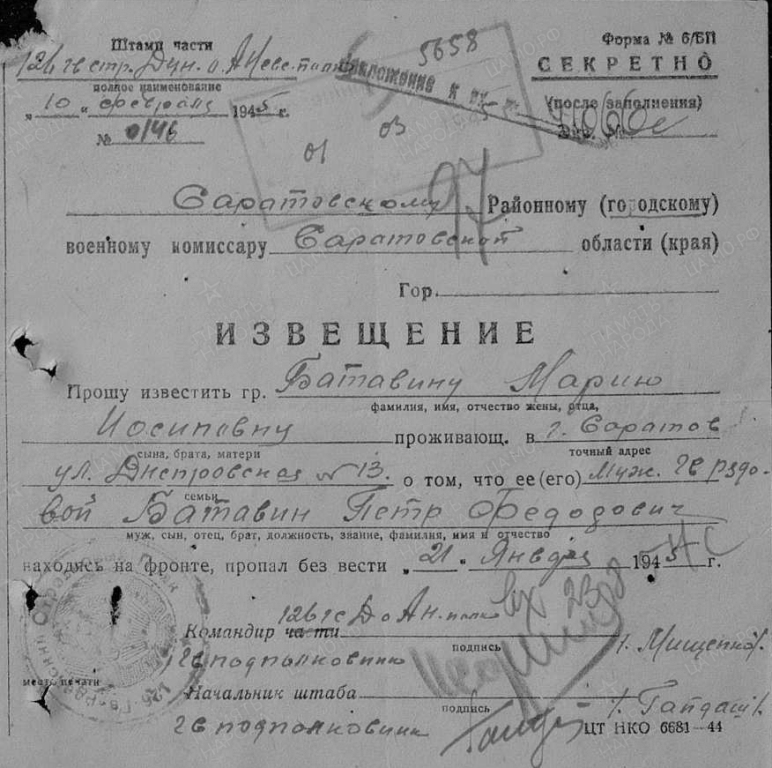 Штамп части
5658
Форма № 6/БП
126 гв стр. Дун. о. А Невс. полк
СЕКРЕТНО
полное наименование
Приложение к вх.
(после заполнения)
„10„ февраля 1945 г.
№ 0146
01 03
94
Саратовскому Районному (городскому)
военному комиссару Саратовской области (края)
Гор.
ИЗВЕЩЕНИЕ
Прошу известить гр. Батавину Марию
фамилия, имя, отчество жены, отца,
Иосиповну проживающ. в г. Саратов
сына, брата, матери точный адрес
ул. Днепровская № 13. о том, что ее (его) Муж. гв рядо-
семьи
вой Батавин Петр Федодович
муж, сын, отец, брат, должность, звание, фамилия, имя и отчество
находясь на фронте, пропал без вести „21„ Января 1945 г.
126 гс Д о А Н. полка
Командир части
подпись
/. Мищенко/.
гв подполковник
место печати
Начальник штаба
подпись
/. Гапдаш/.
гв подполковник
ЦТ НКО 6681—44